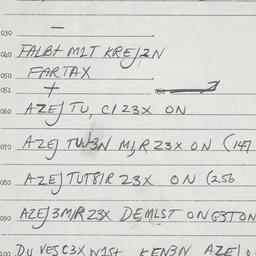 030 —
040 FALB+ M1T KREJ2N
050 FARTAX
051 +
060 AZEJ TU, C1 23X ON
070 AZEJ TUW3N MJR 23X ON (147
080 AZEJ TUT8IR 23X ON (256
090 AZEJ3MJR 23X DEMLST ON G3T ON
100 DU VESC3X N1S+ KEN3N AZEJ